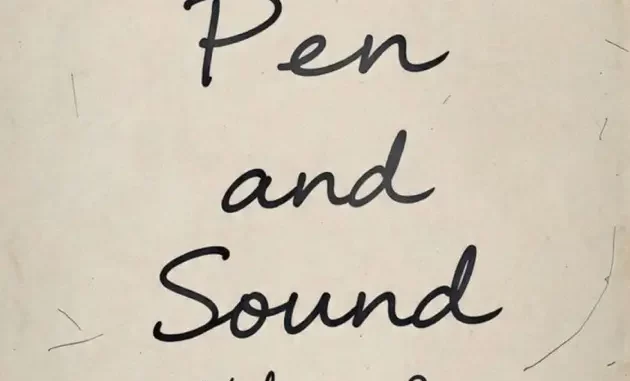 Pen
and
Sound